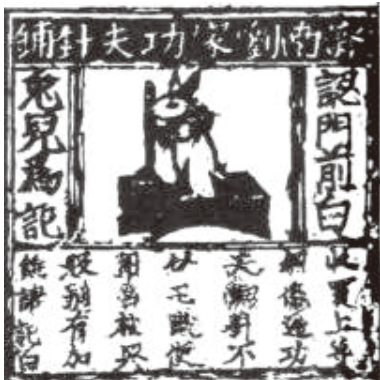 濟南劉家功夫針鋪
認門前白
兔兒爲記
收買上等
鋼條造功
夫細針不
宅使
用
販別有加
饒請記白